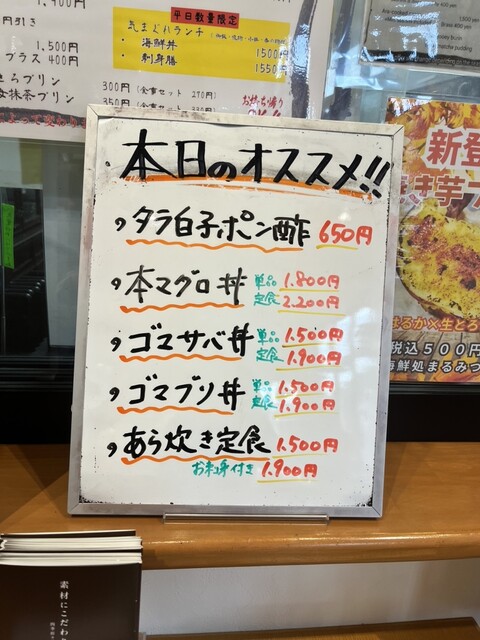 平日数量限定
気まぐれランチ
・海鮮丼 1500円
・刺身膳 1550円
円引き
1,500円
プラス 400円
300円 (食事セット 270円)
お持ち帰り
本日のオススメ!!
タラ白子ポン酢 650円
本マグロ丼 単品 1.800円
定食 2.200円
ゴマサバ丼 単品 1.500円
定食 1.900円
ゴマブリ丼 単品 1.500円
定食 1.900円
あら炊き定食 1.500円
お刺身付き 1.900円
新登
き芋
るか×生とろ
税込５００円
海鮮処まるみつ
素材にこだわ